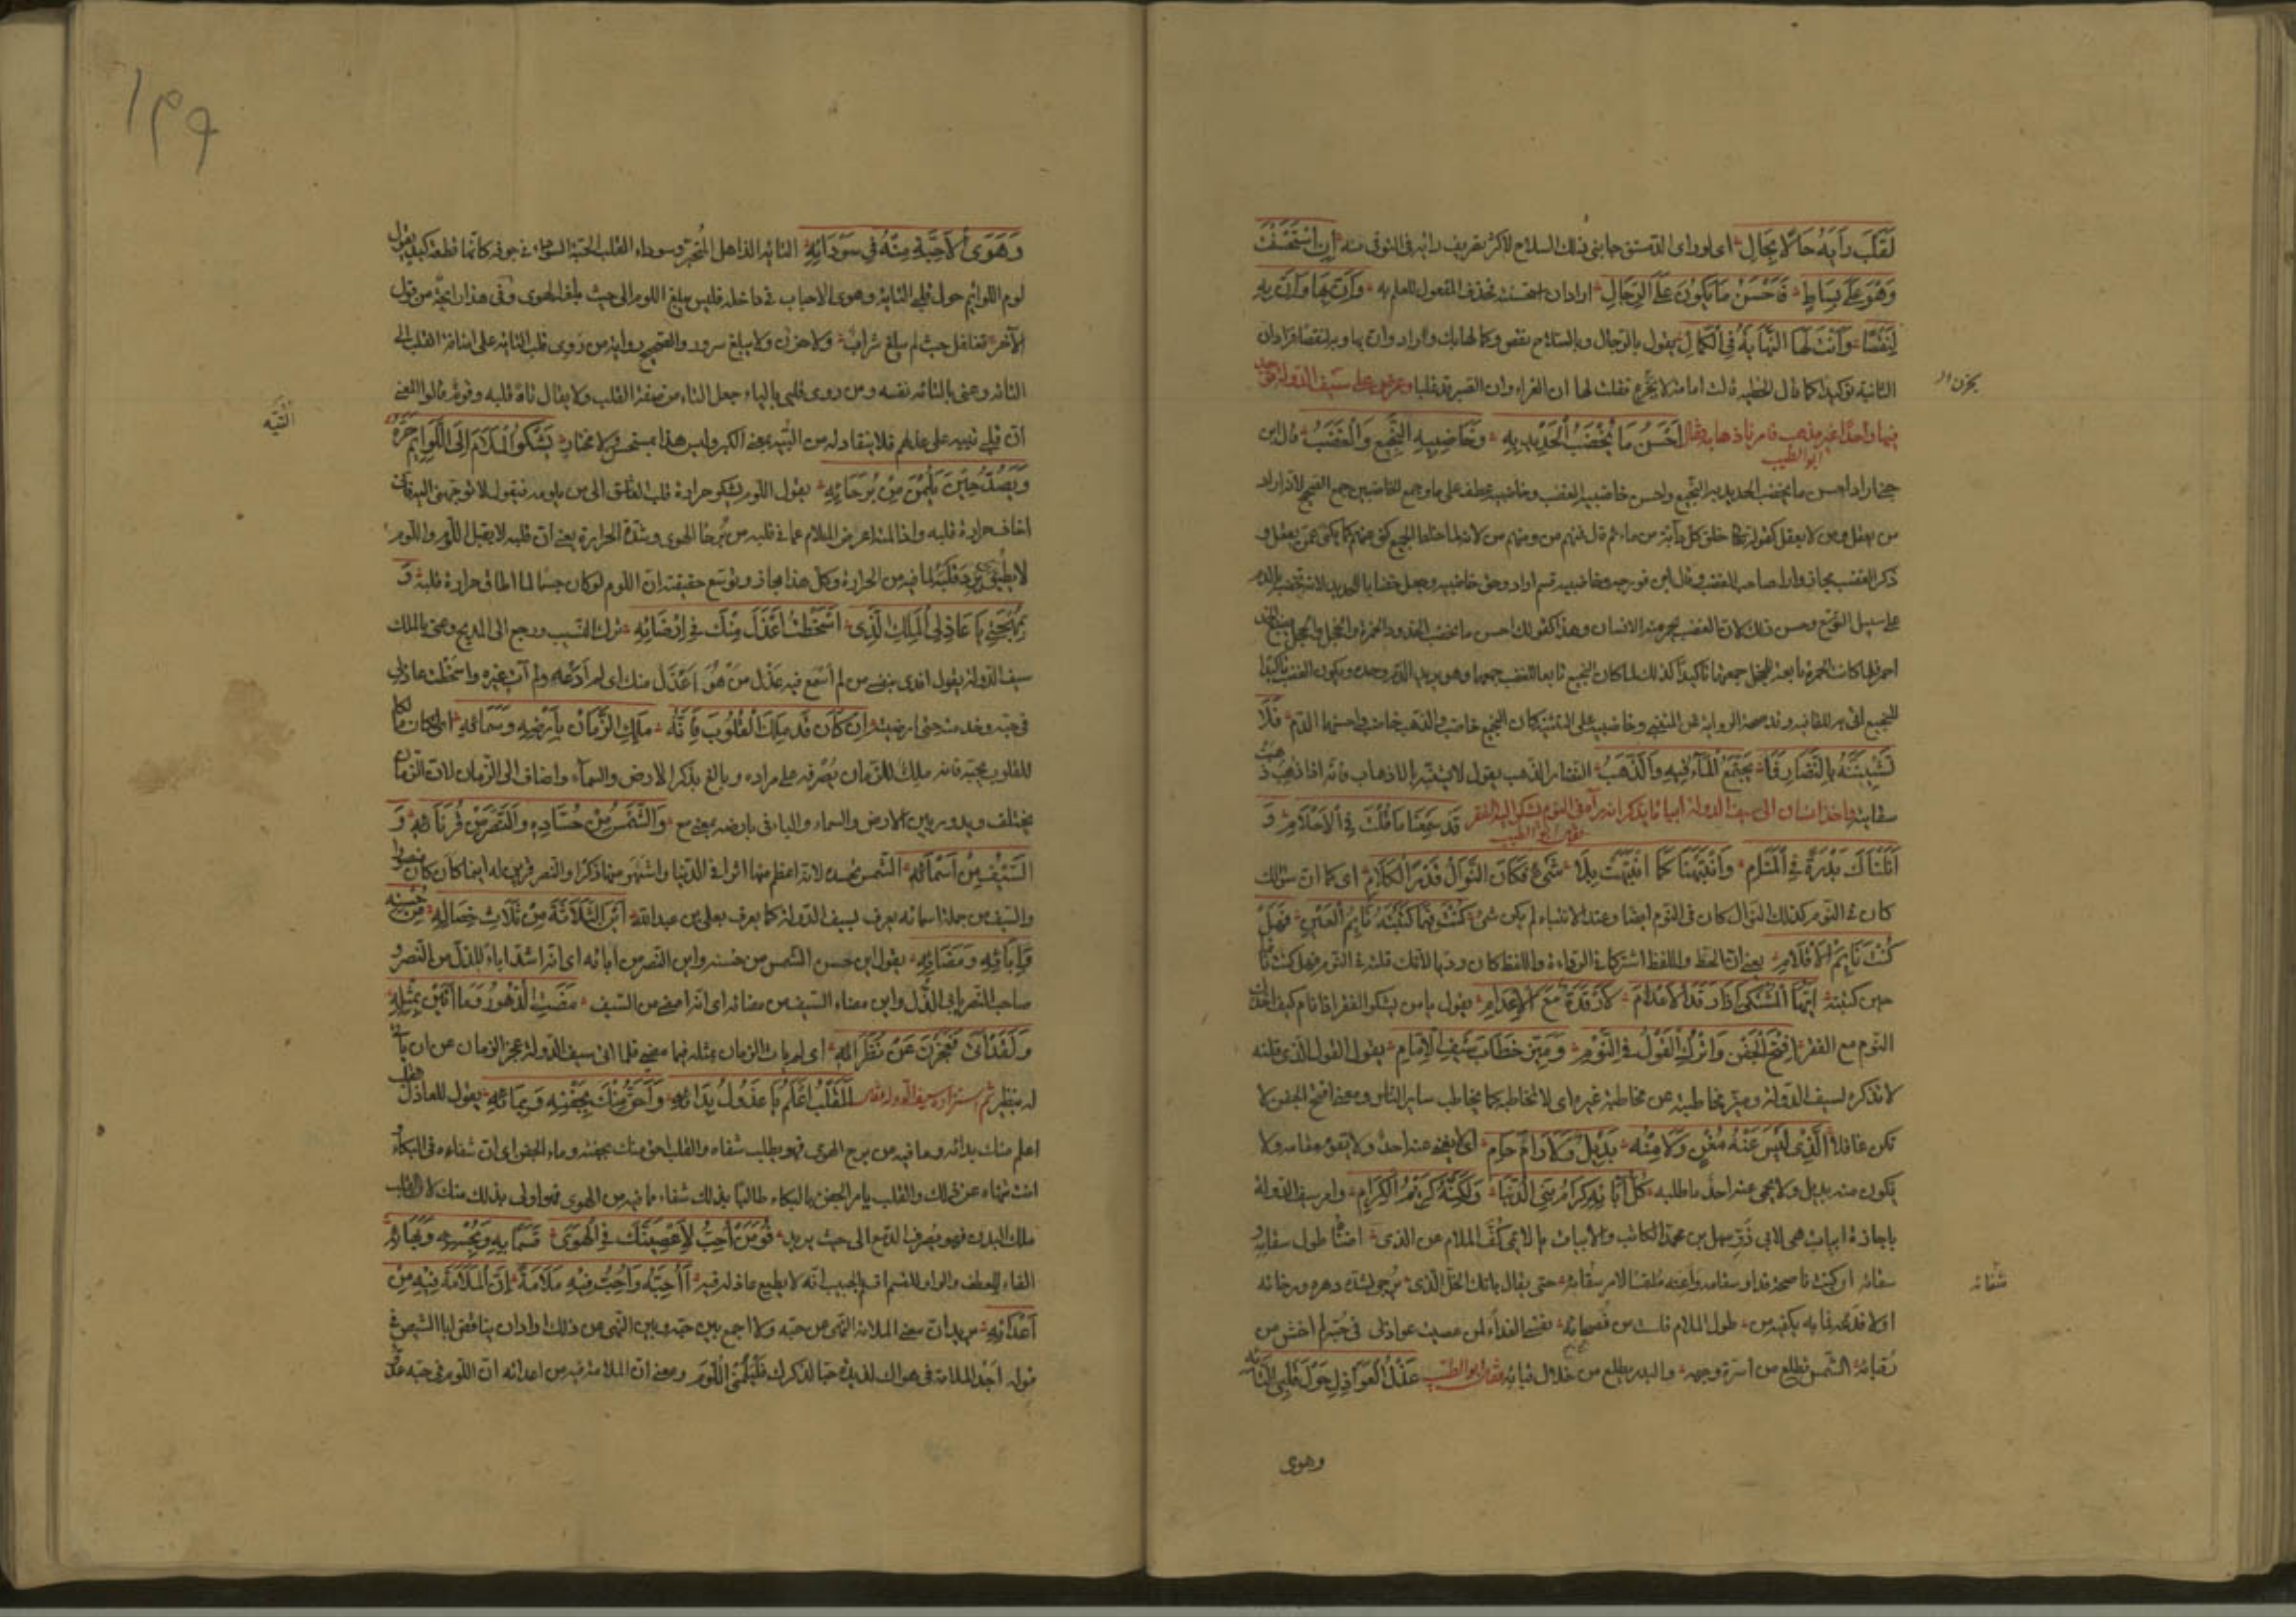 لَقَلَّبَ رَأيَهُ حَالًا بِحَالِ اى لو راى الدمستق جانبى ذلك السلاح لاكثر تصريف رايه فى التوقى منه اِنِ اسْتَحْسَنْتَ
وَهُوَ عَلَى بِسَاطٍ فَاَحْسَنُ مَا يَكُونُ عَلَى الرِّجَالِ اراد ان استحسنته فحذف المفعول للعلم به وَاَنَّ بِهَا وَاَنَّ بِهِ
لَنَقْصًا وَاَنْتَ لَهَا النِّهَايَةُ فِى الْكَمَالِ يقول بالرجال وبالسلاح نقص وكمالهابك واراد وان بها وبه لنقصا فزاد ان
الثانية توكيدا كما قال الحطيه قالت امامة لا تجزع فقلت لها ان العزاء وان الصبر قد غلبا وعرض على سيف الدولة سيوف
يحزن ال
فيها واحدا غير مذهب فامر باذهابه فقال ابو الطيب اَحْسَنُ مَا يُخْضَبُ الْحَدِيدُ بِهِ وَخَاضِبِيهِ النَّجِيعُ وَالْغَضَبُ قال ابن
جنى اراد احسن ما يخضب الحديد به النجيع واحسن خاضبيه الغضب وخاضبيه عطف على ما وجمع الخاضبين جمع الصحيح لانه اراد
من يعقل ومن لا يعقل كقوله تعالى خلق كل دابة من ماء ثم قال فمنهم من ومنهم من لانه لما اختلط الجميع كنى عنهم كما يكنى عمن يعقل و
ذكر الغضب مجازا واراد صاحب الغضب وقال ابن فورجه وخاضبيه قسم اراد وحق خاضبيه وجعل خضاب الحديد لانه يخضبه بالدم
على سبيل التوسع وحسن ذلك لان الغضب يحمر منه الانسان وهذا كقولك احسن ما يخضب الخدود الحمرة والخجل والخجل يصبغ الخد
احمر فلما كانت الحمرة تابعة للخجل جمعهما تاكيدا كذلك لما كان النجيع تابعا للغضب جمعهما وهو يريد الدم وحده ويكون الغضب تاكيدا
للنجيع اتى به للقافيه وقد صحت الرواية عن المتنبى وخاضبيه على التثنيه كان النجيع خاضب والذهب خاضب واحسنهما الدم فَلَا
تَشِينَنْهُ بِالنُّضَارِ فَمَا يَجْتَمِعُ الْمَاءُ فِيهِ وَالذَّهَبُ النضار الذهب يقول لا تشنه بالاذهاب فانه اذا ذهب ذهبت
سقايته فاخذ انسان الى سيف الدولة ابياتا يذكر انه رآه فى النوم يشكو اليه الفقر فقال ابو الطيب قَدْ سَمِعْنَا مَا قُلْتَ فِى الْاَحْلَامِ وَ
اَنَلْنَاكَ بَدْرَةً فِى الْمَنَامِ وَانْتَبَهْنَا كَمَا انْتَبَهْتَ بِلَا شَىْءٍ فَكَانَ النَّوَالُ قَدْرَ الْكَلَامِ اى كما ان سؤالك
كان فى النوم كذلك النوال كان فى النوم ايضا وعند الانتباه لم يكن شئ كُنْتَ فِيمَا كَتَبْتَهُ نَايِمَ الْعَيْنِ فَهَلْ
كُنْتَ نَايِمَ الْاَقْلَامِ يعنى ان الخط واللفظ اشتركا فى الرداءة واللفظ كان رديا لانك قلته فى النوم فهل كنت نائما
حين كتبته اَيُّهَا الْمُشْتَكِى اِذَا رَقَدَ الْاِعْدَامَ لَا رَقْدَةٌ مَعَ الْاِعْدَامِ يقول يا من يشكو الفقر اذا نام كيف اخذك
النوم مع الفقر اِفْتَحِ الْجَفْنَ وَاتْرُكِ الْقَوْلَ فِى النَّوْمِ وَمَيِّزْ خِطَابَ سَيْفِ الْاِمَامِ يقول القول الذى قلته
لا تذكره لسيف الدولة وميز مخاطبته عن مخاطبة غيره اى لا تخاطبه كما يخاطب ساير الناس ومعنى افتح الجفن لا
تكن غافلا اَلَّذِى لَيْسَ عَنْهُ مُغْنٍ وَلَا مِنْهُ بَدِيلٌ وَلَا لِمَا رَامَ حَامِ اى لا يغنى عنه احد ولا يقوم مقامه ولا
يكون منه بديل ولا يحمى عنه احد ما طلبه كُلُّ آبَائِهِ كِرَامُ بَنِى الدُّنْيَا وَلَكِنَّهُ كَرِيمُ الْكِرَامِ وامر سيف الدولة
باجازة ابيات هى لابى ذر سهل بن محمد الكاتب والابيات يا لائمى كف الملام عن الذى اضناه طول سقامه و
سقائه ان كنت ناصحه فداو سقامه واعنه ملتمسا لامر شفائه حتى يقال بانك الخل الذى يرجى لشدة دهره ورخائه
شفائه
اولا فدعه فما به يكفيه من طول الملام فلست من نصحائه نفسى الفداء لمن عصيت عواذلى فى حبه لم اخش من
رقبائه الشمس تطلع من اسرة وجهه والبدر يطلع من خلال قبائه فقال ابو الطيب عَذْلُ الْعَوَاذِلِ حَوْلَ قَلْبِى التَّائِهِ
وهوى
١٣٩
وَهَوَى الْاَحِبَّةِ مِنْهُ فِى سَوْدَائِهِ التائه الذاهل المتحير وسوداء القلب الحبة السوداء فى جوفه كانها قطعة كبد يقول
لوم اللوائم حول قلبى التائه وهوى الاحباب فى داخله فليس يبلغ اللوم الى حيث بلغ الهوى وفى هذا رايحة من قول
الآخر تغلغل حيث لم يبلغ شراب ولا حزن ولم يبلغ سرور والصحيح رواية من روى قلب التائه على اضافة القلب الى
التائه وعنى بالتائه نفسه ومن روى قلبى بالياء جعل التاء من صفة القلب ولا يقال تاه قلبه وقوم قالوا المعنى
التيه
ان قلبى تيهه على عذلهم فلا ينقاد له من التيه بمعنى الكبر وليس هذا بمستحسن ولا مختار يَشْكُو الْمَلَامُ اِلَى اللَّوَائِمِ حَرَّهُ
وَيَصُدُّ حِينَ يَلُمْنَ عَنْ بُرَحَائِهِ يقول اللوم يشكو حرارة قلب العاشق الى من يلومه فيقول لا توجهنى اليه فانى
اخاف حرارة قلبه واذا لمته اعرض الملام عما فى قلبه من برحا الهوى وشدة الحرارة يعنى ان قلبه لا يقبل اللوم واللوم
لا يطيق ان يرد قلبه لما فيه من الحرارة وكل هذا مجاز وتوسع حقيقته ان اللوم لو كان جسما لما اطاق حرارة قلبه وَ
بِمُهْجَتِى يَا عَاذِلِى الْمَلِكُ الَّذِى اَسْخَطْتُ اَعْذَلَ مِنْكَ فِى اِرْضَائِهِ ترك النسيب ورجع الى المديح وعنى بالملك
سيف الدولة يقول افدى بنفسى من لم اسمع فيه عذل من هو اعذل منك اى لم ادعه ولم آت غيره واسخطت عاذلى
فى حبه وخدمته حتى ارضيته اِنْ كَانَ قَدْ مَلَكَ الْقُلُوبَ فَاِنَّهُ مَلَكَ الزَّمَانَ بِاَرْضِهِ وَسَمَائِهِ اى ان كان مالكا
للقلوب بحبه فانه ملك الزمان يصرفه على مراده وبالغ بذكر الارض والسماء واضاف الى الزمان لان الزمان
يختلف ويدور بين الارض والسماء والباء فى بارضه بمعنى مع وَالشَّمْسُ مِنْ حُسَّادِهِ وَالنَّصْرُ مِنْ قُرَنَائِهِ وَ
السَّيْفُ مِنْ اَسْمَائِهِ الشمس تحسده لانه اعظم منها اثرا فى الدنيا واشهر منها ذكرا والنصر قرين له اينما كان كان منصورا
والسيف من جملة اسمائه يعرف بسيف الدولة كما يعرف بعلى بن عبد الله اَيْنَ الثَّلَاثَةُ مِنْ ثَلَاثِ خِصَالِهِ مِنْ حُسْنِهِ
وَاِبَائِهِ وَمَضَائِهِ يقول اين حسن الشمس من حسنه واين النصر من ابائه اى انه اشد اباء للذل من النصر و
صاحب النصر يابى الذل واين مضاء السيف من مضائه اى انه امضى من السيف مَضَتِ الدُّهُورُ وَمَا اَتَيْنَ بِمِثْلِهِ
وَلَقَدْ اَتَى فَعَجَزْنَ عَنْ نُظَرَائِهِ اى لم يات الزمان بمثله فيما مضى فلما اتى سيف الدولة عجز الزمان عن ان ياتى
له بنظير ثم استزاده سيف الدولة فقال اَلْقَلْبُ اَعْلَمُ يَا عَذُولُ بِدَائِهِ وَاَحَقُّ مِنْكَ بِجَفْنِهِ وَبِمَائِهِ يقول للعاذل القلب
اعلم منك بدائه وما فيه من برح الهوى فهو يطلب شفاه والقلب احق منك بجفنه وماء الجفن اى ان شفاءه فى البكاء
انت تنهاه عن ذلك والقلب يامر الجفن بالبكاء طالبا بذلك شفاء ما فيه من الهوى فهو اولى بذلك منك لان القلب
ملك البدن فهو يصرف الدمع الى حيث يريد فَوَمَنْ اُحِبُّ لَاَعْصِيَنَّكَ فِى الْهَوَى قَسَمًا بِهِ وَبِحُسْنِهِ وَبَهَائِهِ
الفاء للعطف والواو للقسم اقسم بالحبيب انه لا يطيع عاذله فيه اَاُحِبُّهُ وَاُحِبُّ فِيهِ مَلَامَةً اِنَّ الْمَلَامَةَ فِيهِ مِنْ
اَعْدَائِهِ يريد ان معنى الملامة النهى عن حبه ولا اجمع بين حبه وبين النهى عن ذلك واراد ان يناقض ابا الشيص فى
قوله اجد الملامة فى هواك لذيذة حبا لذكرك فليلمنى اللوم ومعنى ان الملامة فيه من اعدائه ان اللوم فى حبه عدو